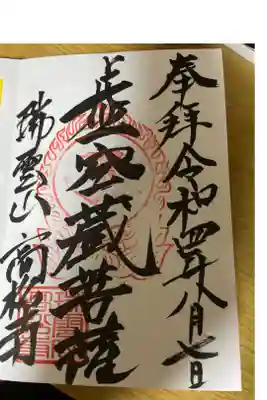 奉拝 令和四年八月七日
虚空蔵菩薩
瑞雲山 高松寺